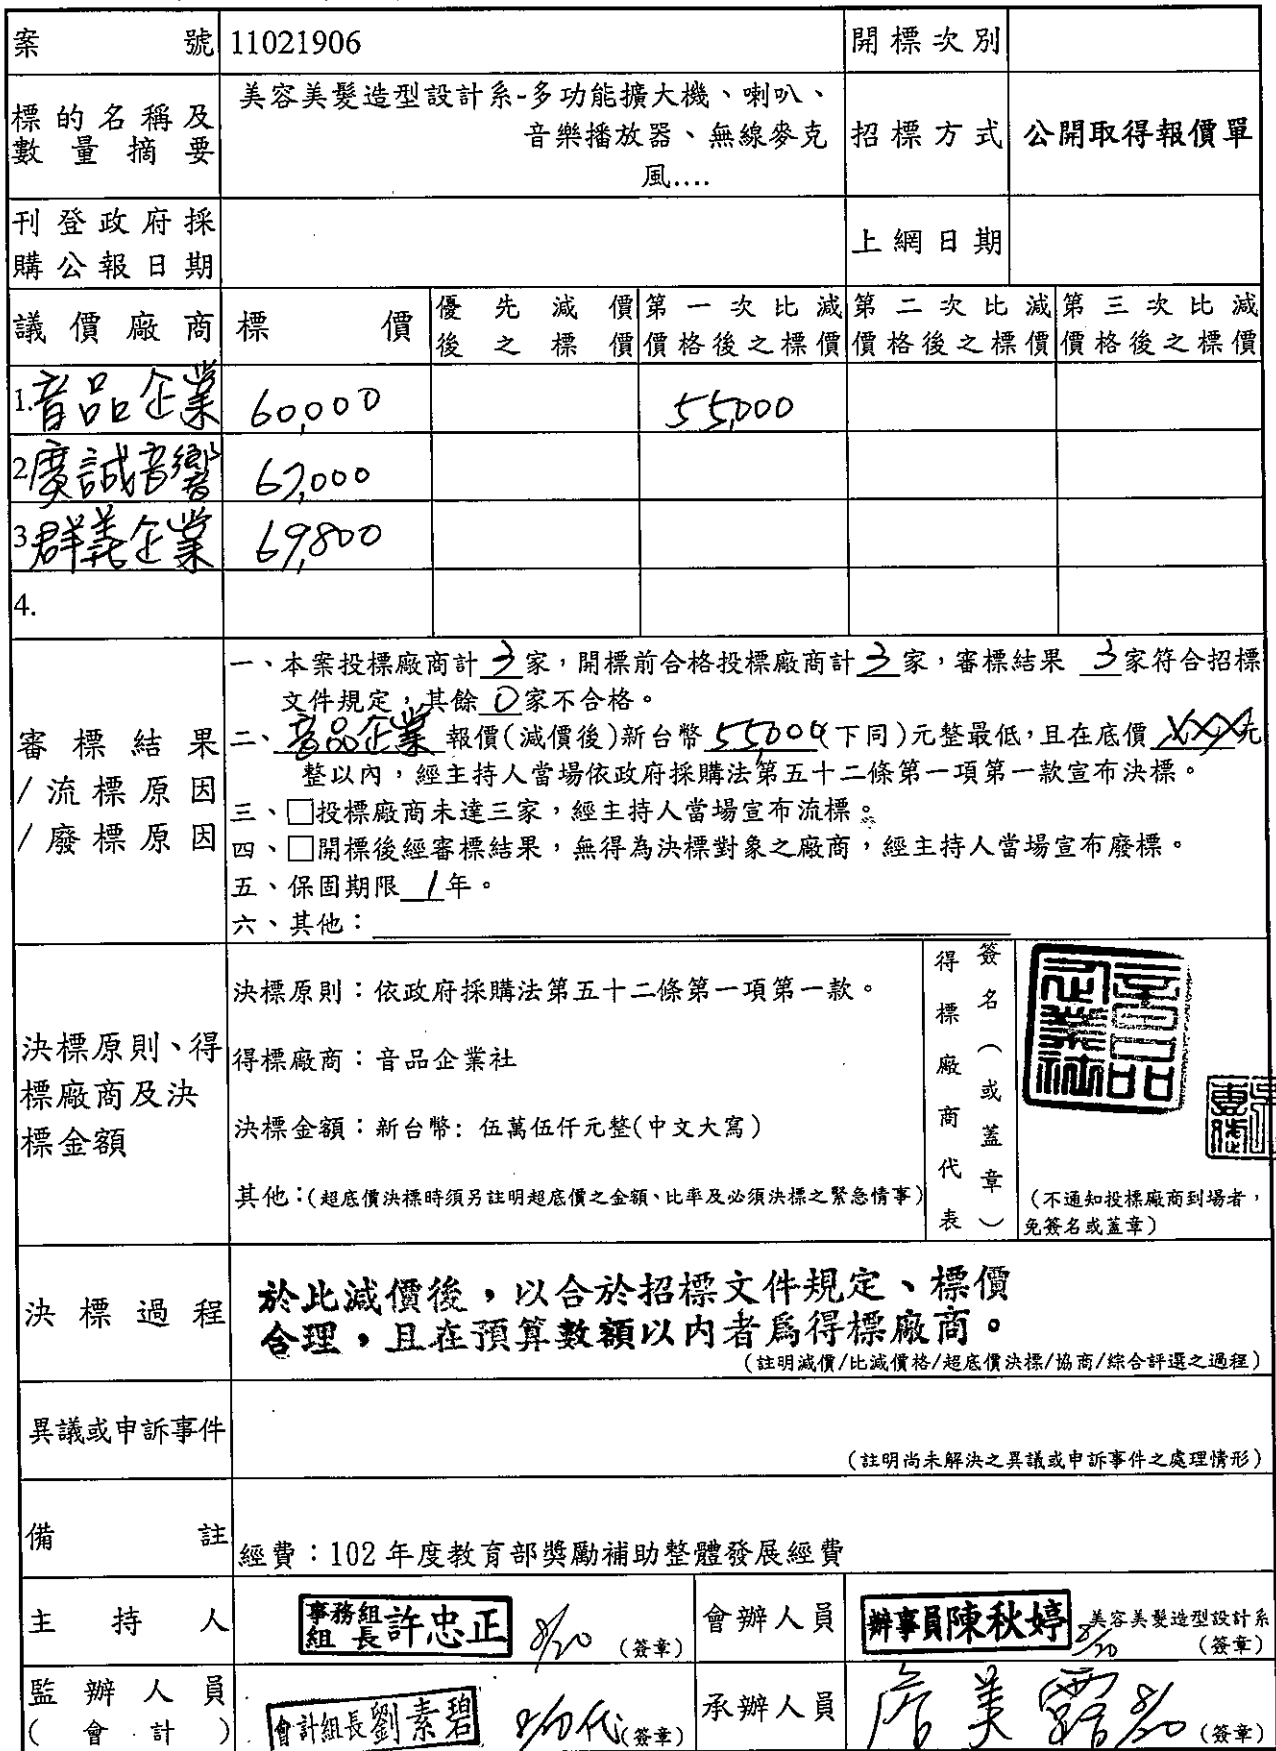 案號 11021906 開標次別
標的名稱及數量摘要 美容美髮造型設計系-多功能擴大機、喇叭、
音樂播放器、無線麥克
風....
招標方式 公開取得報價單
刊登政府採購公報日期 上網日期
議價廠商 標價 優先減價後之標價 第一次比減價格後之標價 第二次比減價格後之標價 第三次比減價格後之標價
1.音品企業 60,000 55,000
2.廣誠音響 67,000
3.群義企業 69,800
4.
審標結果/流標原因/廢標原因
一、本案投標廠商計 3 家，開標前合格投標廠商計 3 家，審標結果 3 家符合招標
文件規定，其餘 0 家不合格。
二、音品企業 報價(減價後)新台幣 55,000(下同)元整最低，且在底價 XXX元
整以內，經主持人當場依政府採購法第五十二條第一項第一款宣布決標。
三、□投標廠商未達三家，經主持人當場宣布流標。
四、□開標後經審標結果，無得為決標對象之廠商，經主持人當場宣布廢標。
五、保固期限 1 年。
六、其他：
決標原則、得標廠商及決標金額
決標原則：依政府採購法第五十二條第一項第一款。
得標廠商：音品企業社
決標金額：新台幣: 伍萬伍仟元整(中文大寫)
其他：(超底價決標時須另註明超底價之金額、比率及必須決標之緊急情事)
得標廠商代表
簽名（或蓋章）
音品企業社
(不通知投標廠商到場者，
免簽名或蓋章)
決標過程
於比減價後，以合於招標文件規定、標價
合理，且在預算數額以內者為得標廠商。
(註明減價/比減價格/超底價決標/協商/綜合評選之過程)
異議或申訴事件
(註明尚未解決之異議或申訴事件之處理情形)
備註 經費：102 年度教育部獎勵補助整體發展經費
主持人 事務組組長 許忠正 8/20 (簽章) 會辦人員 辦事員陳秋婷 8/20 美容美髮造型設計系 (簽章)
監辦人員(會計) 會計組長劉素碧 (簽章) 承辦人員 詹美露 8/20 (簽章)